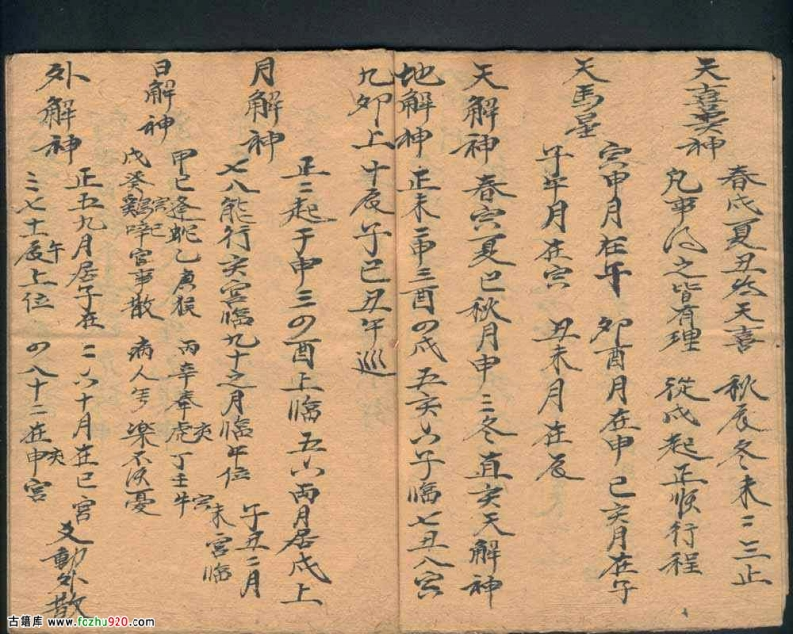 天喜美神
春戌夏丑为天喜 秋辰冬未二三止
凡事得之皆有理 從戌起正順行程
天馬星
寅申月在午 卯酉月在申 巳亥月在子
子午月在寅 丑未月在辰
天解神 春寅夏巳秋月申 三冬直亥天解神
地解神 正未二申三酉四戌 五亥六子臨七丑八寅
九卯上十辰 子巳丑午巡
月解神
正二起于申三四酉上臨 五六兩月居戌上
七八能行亥宮臨九十之月臨午位 子丑二月未宮臨
日解神
甲己逢蛇乙庚猴 丙辛奉虎丁壬牛
戊癸雞啼官事散 病人笑樂不須憂
外解神
正五九月居子在 二六十月在巳宮
三七十一辰上位 四八十二在申宮
爻動外散
古籍库 www.fczhu920.com